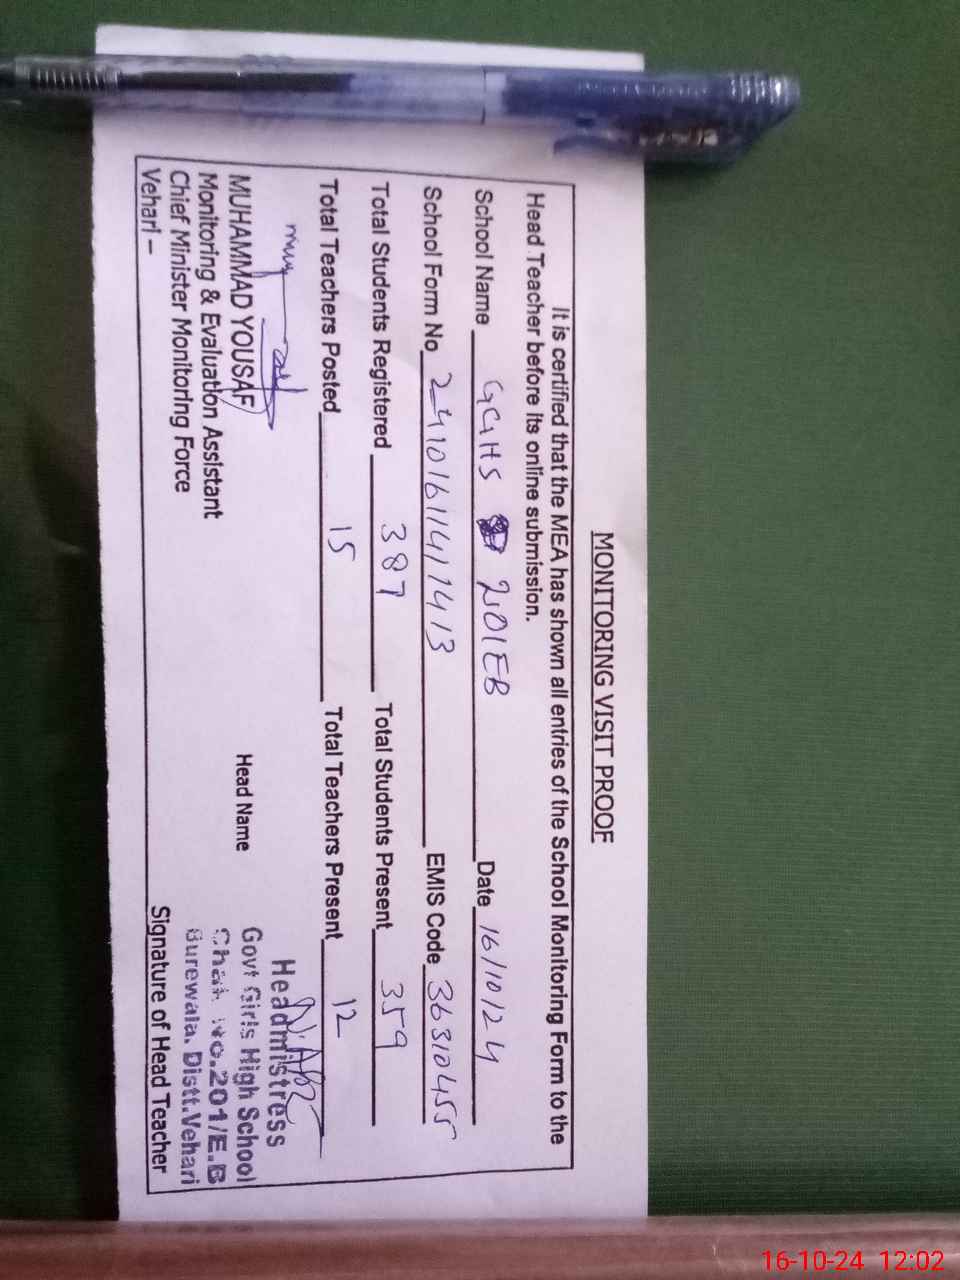 MONITORING VISIT PROOF
It is certified that the MEA has shown all entries of the School Monitoring Form to the
Head Teacher before its online submission.
School Name GGHS 201EB Date 16/10/24
School Form No 2410161141413 EMIS Code 36310455
Total Students Registered 387 Total Students Present 359
Total Teachers Posted 15 Total Teachers Present 12
MUHAMMAD YOUSAF
Monitoring & Evaluation Assistant
Chief Minister Monitoring Force
Vehari –
Head Name
Headmistress
Govt Girls High School
Chak No.201/E.B
Burewala. Distt.Vehari
Signature of Head Teacher
16-10-24 12:02